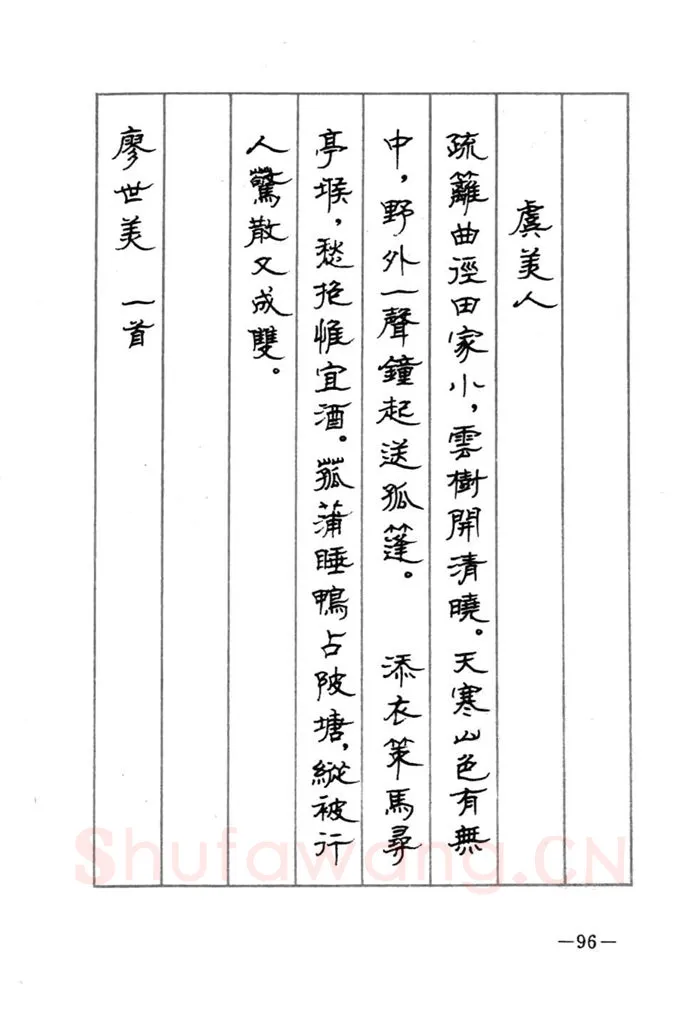 虞美人
疏籬曲徑田家小，雲樹開清曉。天寒山色有無
中，野外一聲鐘起送孤篷。　添衣策馬尋
亭堠，愁抱惟宜酒。菰蒲睡鴨占陂塘，縱被行
人驚散又成雙。
廖世美　一首
Shufawang.CN
—96—